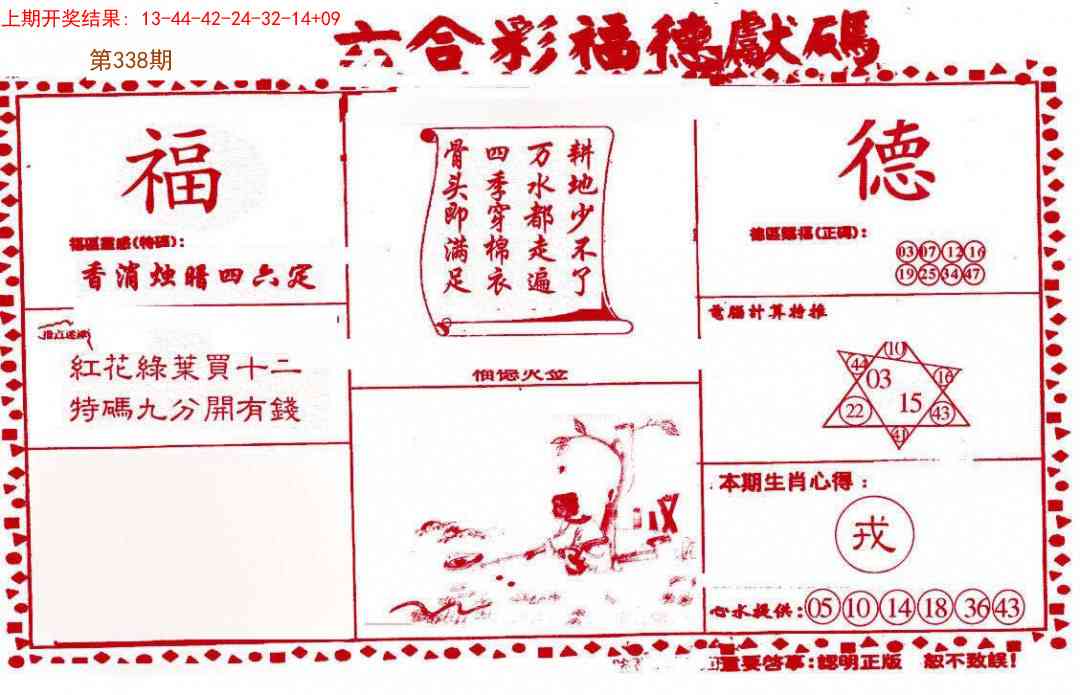 上期开奖结果：13-44-42-24-32-14+09
第338期
六合彩福德獻碼
福
福區靈感(特碼)：
香消烛暗四六定
紅花綠葉買十二
特碼九分開有錢
耕地少不了
万水都走遍
四季穿棉衣
骨头即满足
福德灸金
德
德區賜福(正碼)：
03 07 12 16
19 25 34 47
電腦計算特推
10
44
03
16
22
15
43
41
本期生肖心得：
戎
心水提供：05 10 14 18 36 43
重要啓事：認明正版 恕不致誤！